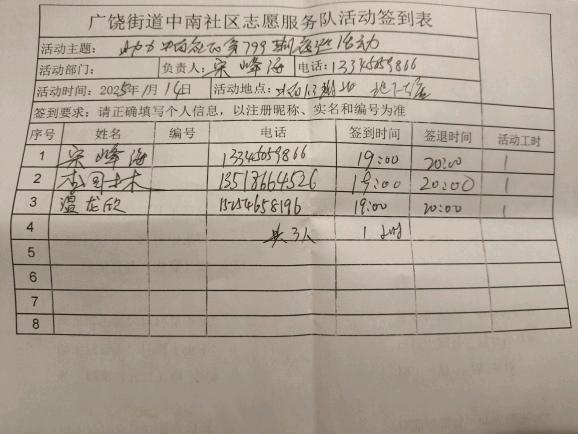 广饶街道中南社区志愿服务队活动签到表
活动主题: 助力中南社区第799期 活动
活动部门: 负责人: 宋峰海 电话: 13345059866
活动时间: 2025年1月14日 活动地点:
签到要求: 请正确填写个人信息, 以注册昵称、实名和编号为准
序号 姓名 编号 电话 签到时间 签退时间 活动工时
1 宋峰海 13345059866 19:00 20:00 1
2 李国木 13518664526 19:00 20:00 1
3 温龙欣 15254658196 19:00 20:00 1
4 共3人 1小时
5
6
7
8